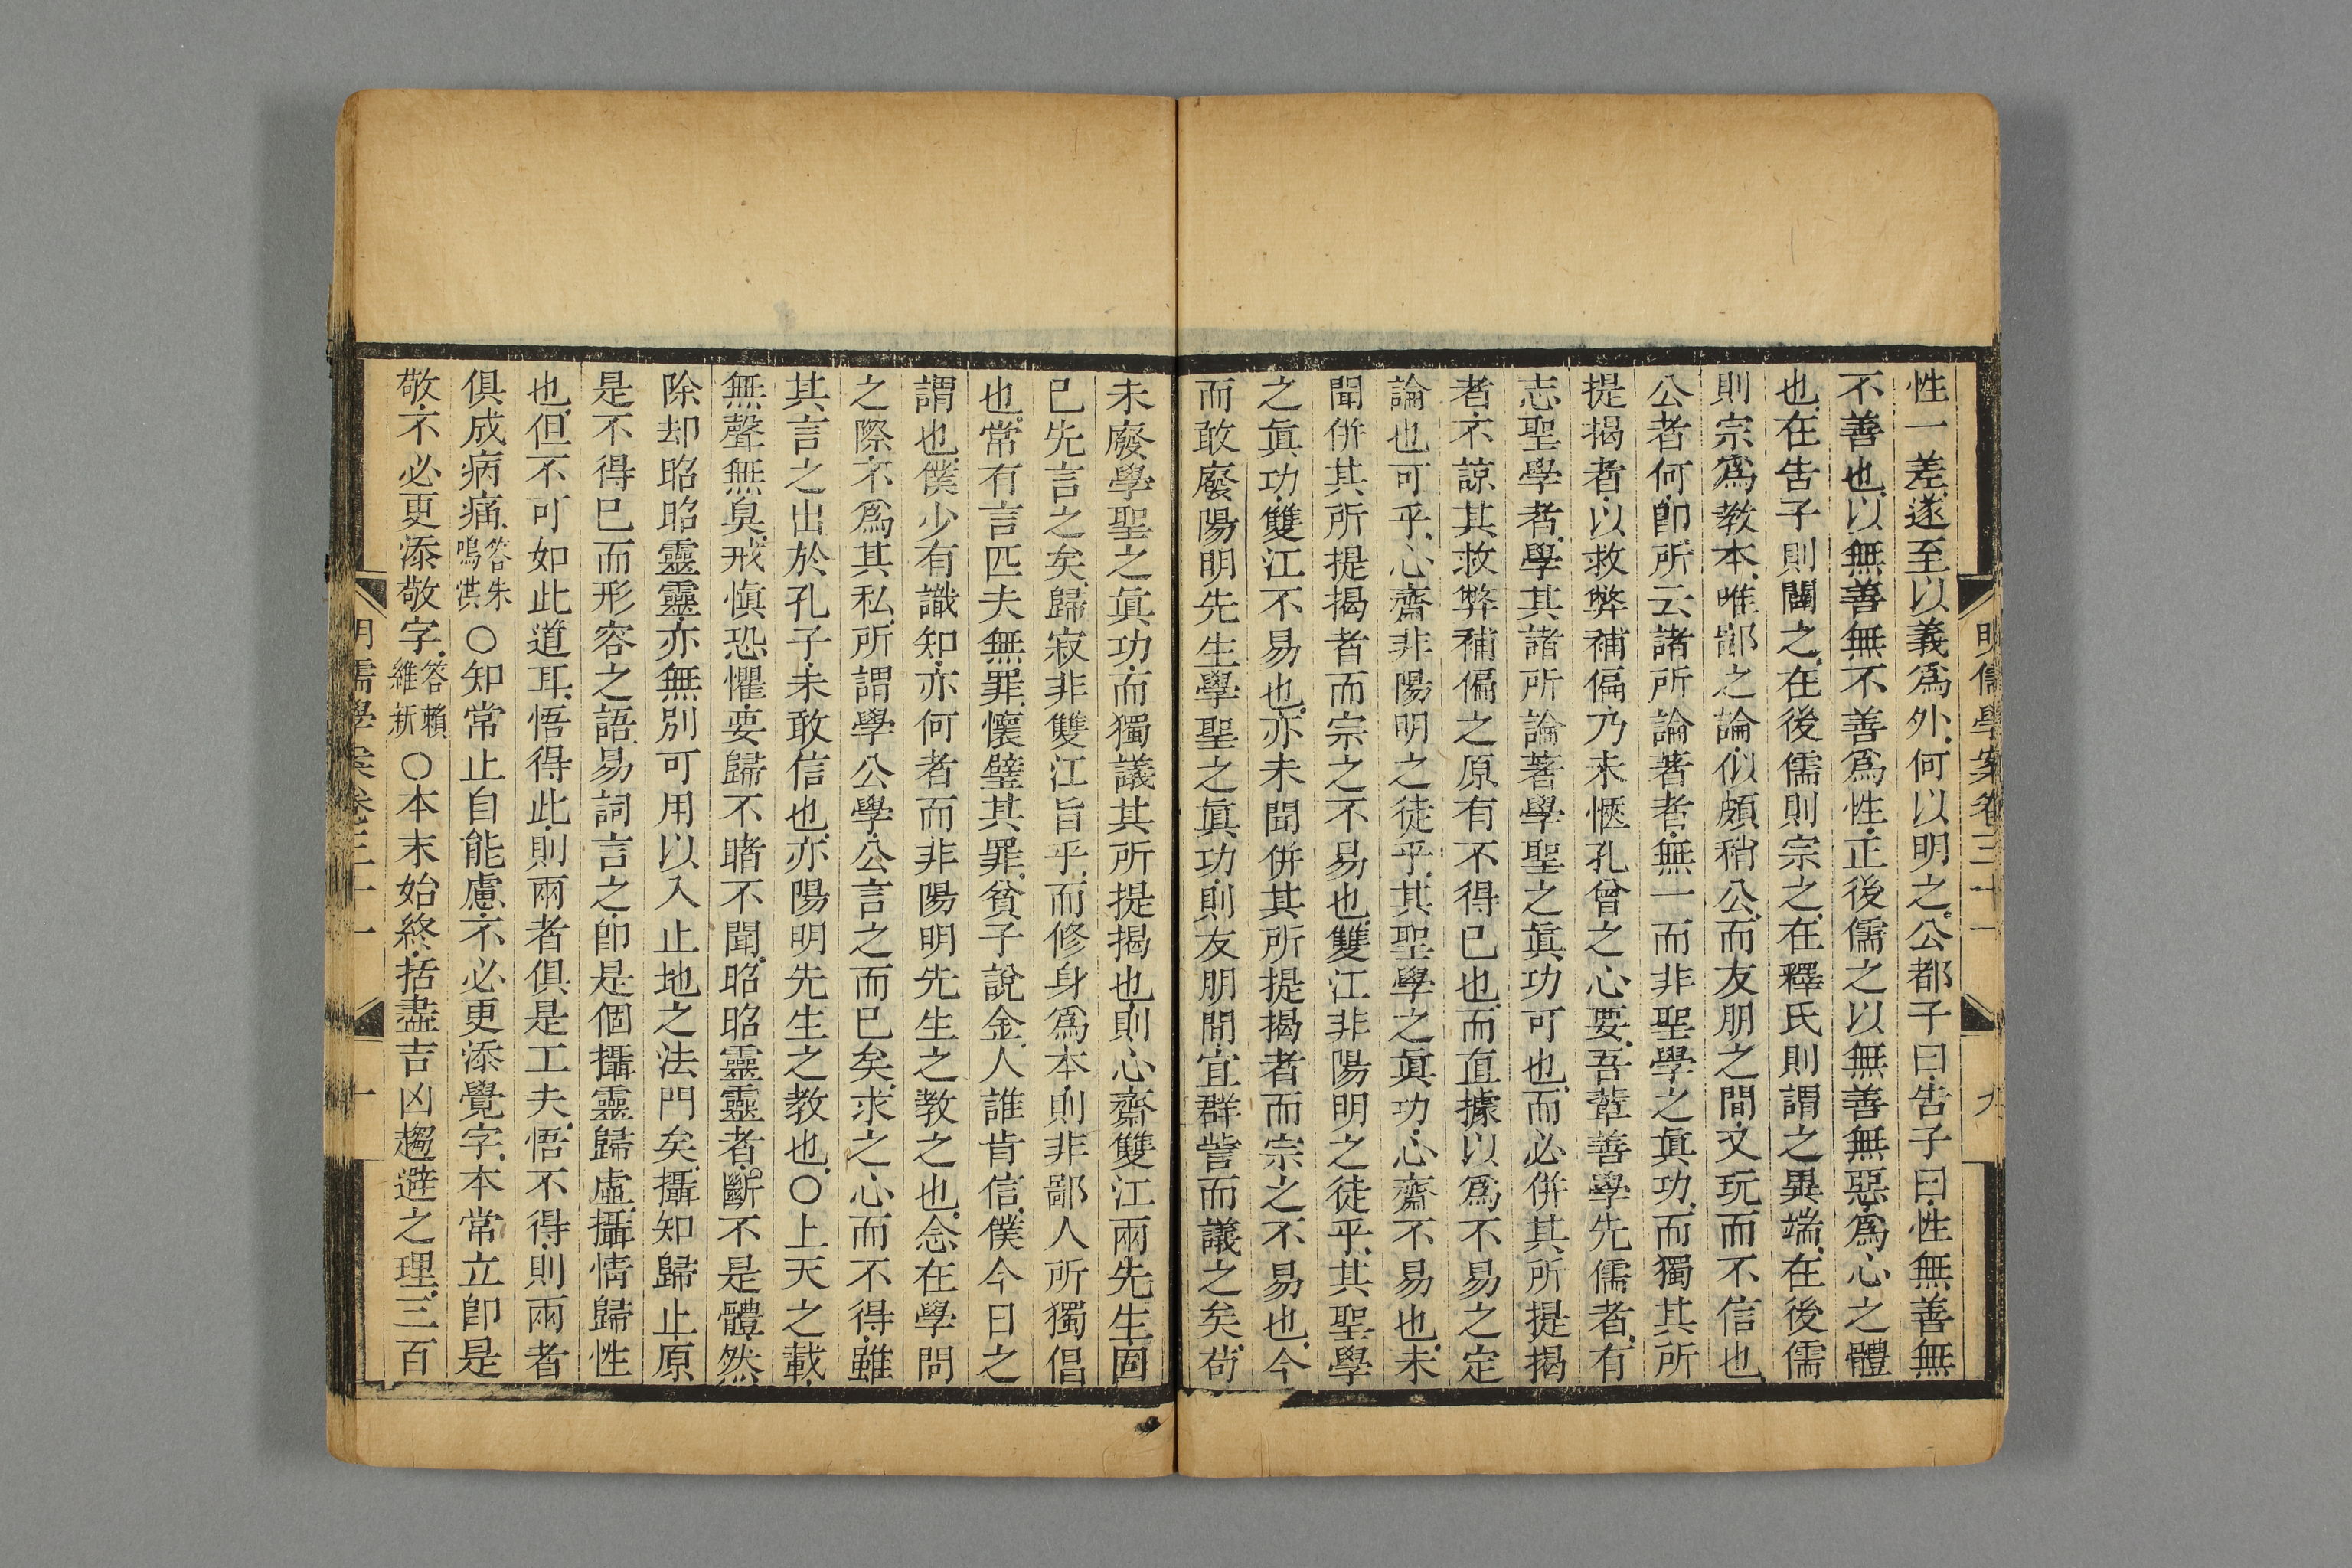 明儒學案卷三十一
九
性一差遂至以義爲外何以明之公都子曰告子曰性無善無
不善也以無善無不善爲性正後儒之以無善無惡爲心之體
也在告子則闢之在後儒則宗之在釋氏則謂之異端在後儒
則宗爲教本唯鄙之論似頗稍公而友朋之間文玩而不信也
公者何卽所云諸所論著者無一而非聖學之眞功而獨其所
提揭者以救弊補偏乃未愜孔曾之心要吾輩善學先儒者有
志聖學者學其諸所論著學聖之眞功可也而必併其所提揭
者不諒其救弊補偏之原有不得已也而直據以爲不易之定
論也可乎心齋非陽明之徒乎其聖學之眞功心齋不易也未
聞併其所提揭者而宗之不易也雙江非陽明之徒乎其聖學
之眞功雙江不易也亦未聞併其所提揭者而宗之不易也今
而敢廢陽明先生學聖之眞功則友朋間宜群訾而議之矣苟
未廢學聖之眞功而獨議其所提揭也則心齋雙江兩先生固
已先言之矣歸寂非雙江旨乎而修身爲本則非鄙人所獨倡
也常有言匹夫無罪懷璧其罪貧子說金人誰肯信僕今日之
謂也僕少有識知亦何者而非陽明先生之教之也念在學問
之際不爲其私所謂學公學公言之而已矣求之心而不得雖
其言之出於孔子未敢信也亦陽明先生之教也○上天之載
無聲無臭戒愼恐懼要歸不睹不聞昭昭靈靈者斷不是體然
除却昭昭靈靈亦無別可用以入止地之法門矣攝知歸止原
是不得已而形容之語易詞言之卽是個攝靈歸虛攝情歸性
也但不可如此道耳悟得此則兩者俱是工夫悟不得則兩者
俱成病痛答朱鳴洪○知常止自能慮不必更添覺字本常立卽是
敬不必更添敬字答賴維新○本末始終括盡吉凶趨避之理三百
明儒學案卷三十一
十